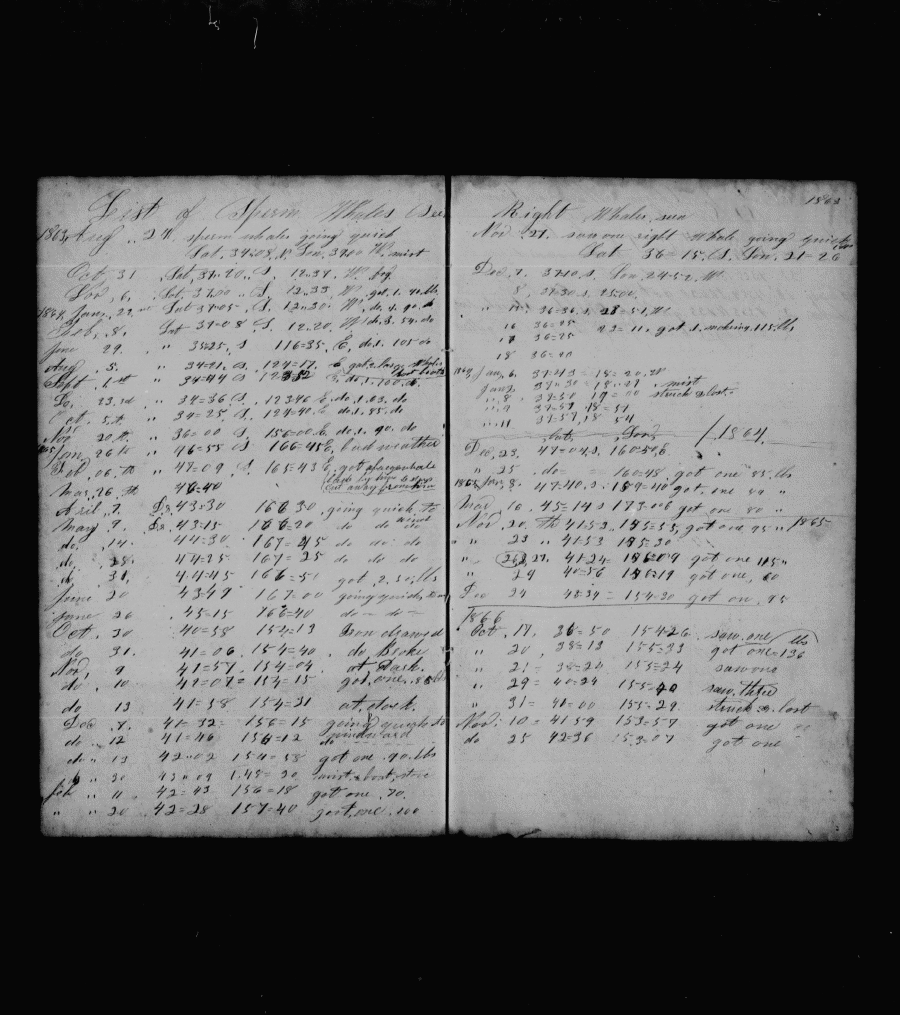 List of Sperm Whales Seen
1863 Aug 27. sperm whales going quick
Lat, 34=08, N Lon, 39=00 W. mist
Oct, 31 Lat, 37=20 S, 12=37, W. fog
Nov, 6, Lat, 37=00 S, 12=33, W. got, 1. 40 lbs
1864 Jany, 22, Lat 37=05 S, 12=30 W. do,
Feb, 8, Lat 37=08 S, 12=20, W. do, 3. 54. do
June 29. " 35=25, S 116=35, E do. 1. 105 do
Aug, 5. " 34=21, S, 124=17. E got 2 large whales
Sept, 1st " 34=44 S E, do. 1. 100. do.
Do, 23,rd " 34=36 S, 123=46 E. do. 1. 63. do
Oct. 5,th " 34=25 S, 124=40. E. do. 1. 85. do
Nov 20 th. " 36=00 S, 156=00 E. do. 1. 90. do
1865 Jan, 26 th " 46=55 S 166=45 E, bad weather
Feb 06, th " 47=09 S, 165=43 E. got
Mar, 26, th 46=40
cut away from him
April, 7. 43=30 166 30 going quick to
May 7, 43=15 166=20 do do do
do, 14. 44=30 167=45 do do do
do, 28. 44=25 167=25 do do do
do, 31, 44=45 166=51 got, 2. 30, lbs
June 20 43=47 167=00 going quick,
June 26 45=15 166=40 do – do –
Oct, 30 40=58 154=13 Iron drawed
do 31. 41=06. 154=40. do Broke
Nov, 9 41=57, 154=04, at Dark.
do, 10 42=07= 154=15 got, one. 85 lbs
do 13 41=38 154=21 at, dark.
Dec, 8, 41=32= 156=15 going quick to
do – 12 41=46 156=12 do windward
do " 13 42=02 154=58 got one, 90. lbs
20 43 09 148= 20
Feb " 11 42=43 156=18 got one, 70.
" " 20 42=28 157=40 got, one, 100
1863
Right Whales, seen
Nov, 27. saw one right Whale going quick
Lat 36=15, S, Lon, 21=26
Dec, 7. 37=10, S, Lon 24=52, W.
8, 37=30 S, 25=00.
" 11, 36=36, S, 28=51, W
16 36=25 43=11. got 1. making. 115. lbs
17 36=25
18 36=20
1864 Jan, 6, 37=13 = 15=20, W
Jany, 37=30 18=27 mist
" 8 37=50 19=00 struck & lost.
" 9 37=57 18=51
" 11 37=57, 18 54
Lat, Lon, 1864,
Dec, 23, 47=04 S, 160=50, E.
" 25 do= = 160=48, got one 85, lbs
1865 Jan, 8, 47=40, S. 159=40 got, one "
Mar, 16, 45=14 S 173=06 got one 80 "
Nov, 20, Th 41=52, 155=53, got one 95 " 1865
" 23 " 41=53 155=30
" 26, 27, 41=24= 156=09 got one 115 "
" 29 40=56 156=19 got one, 60
Dec 24 154=30 got one, 95
1866
Oct, 17, 36=50 154=26 saw, one
" 20, 38=13 155=33 got one = 136 lbs
" 21= 38=20 155=24 saw one
" 29= 40=24 155=40 saw, three
" 31= 41=00 155=29. struck & lost
Nov, 10= 41 59 153=57 got one
do 25 42=36 153=07 got one